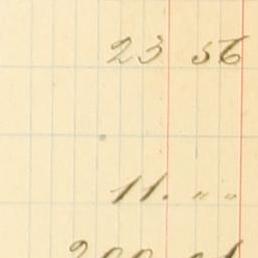 23 56
11. " "